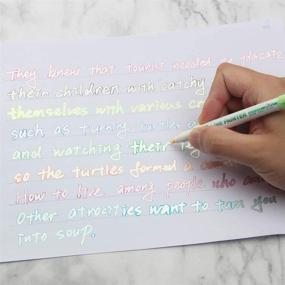 They knew that tourist needed to placate
their children with catchy
themselves with various cr
such as turning turtles
and watching their
so the turtles formed a
How to live among people who
Other atrocities want to turn you
into soup.
PAINTER